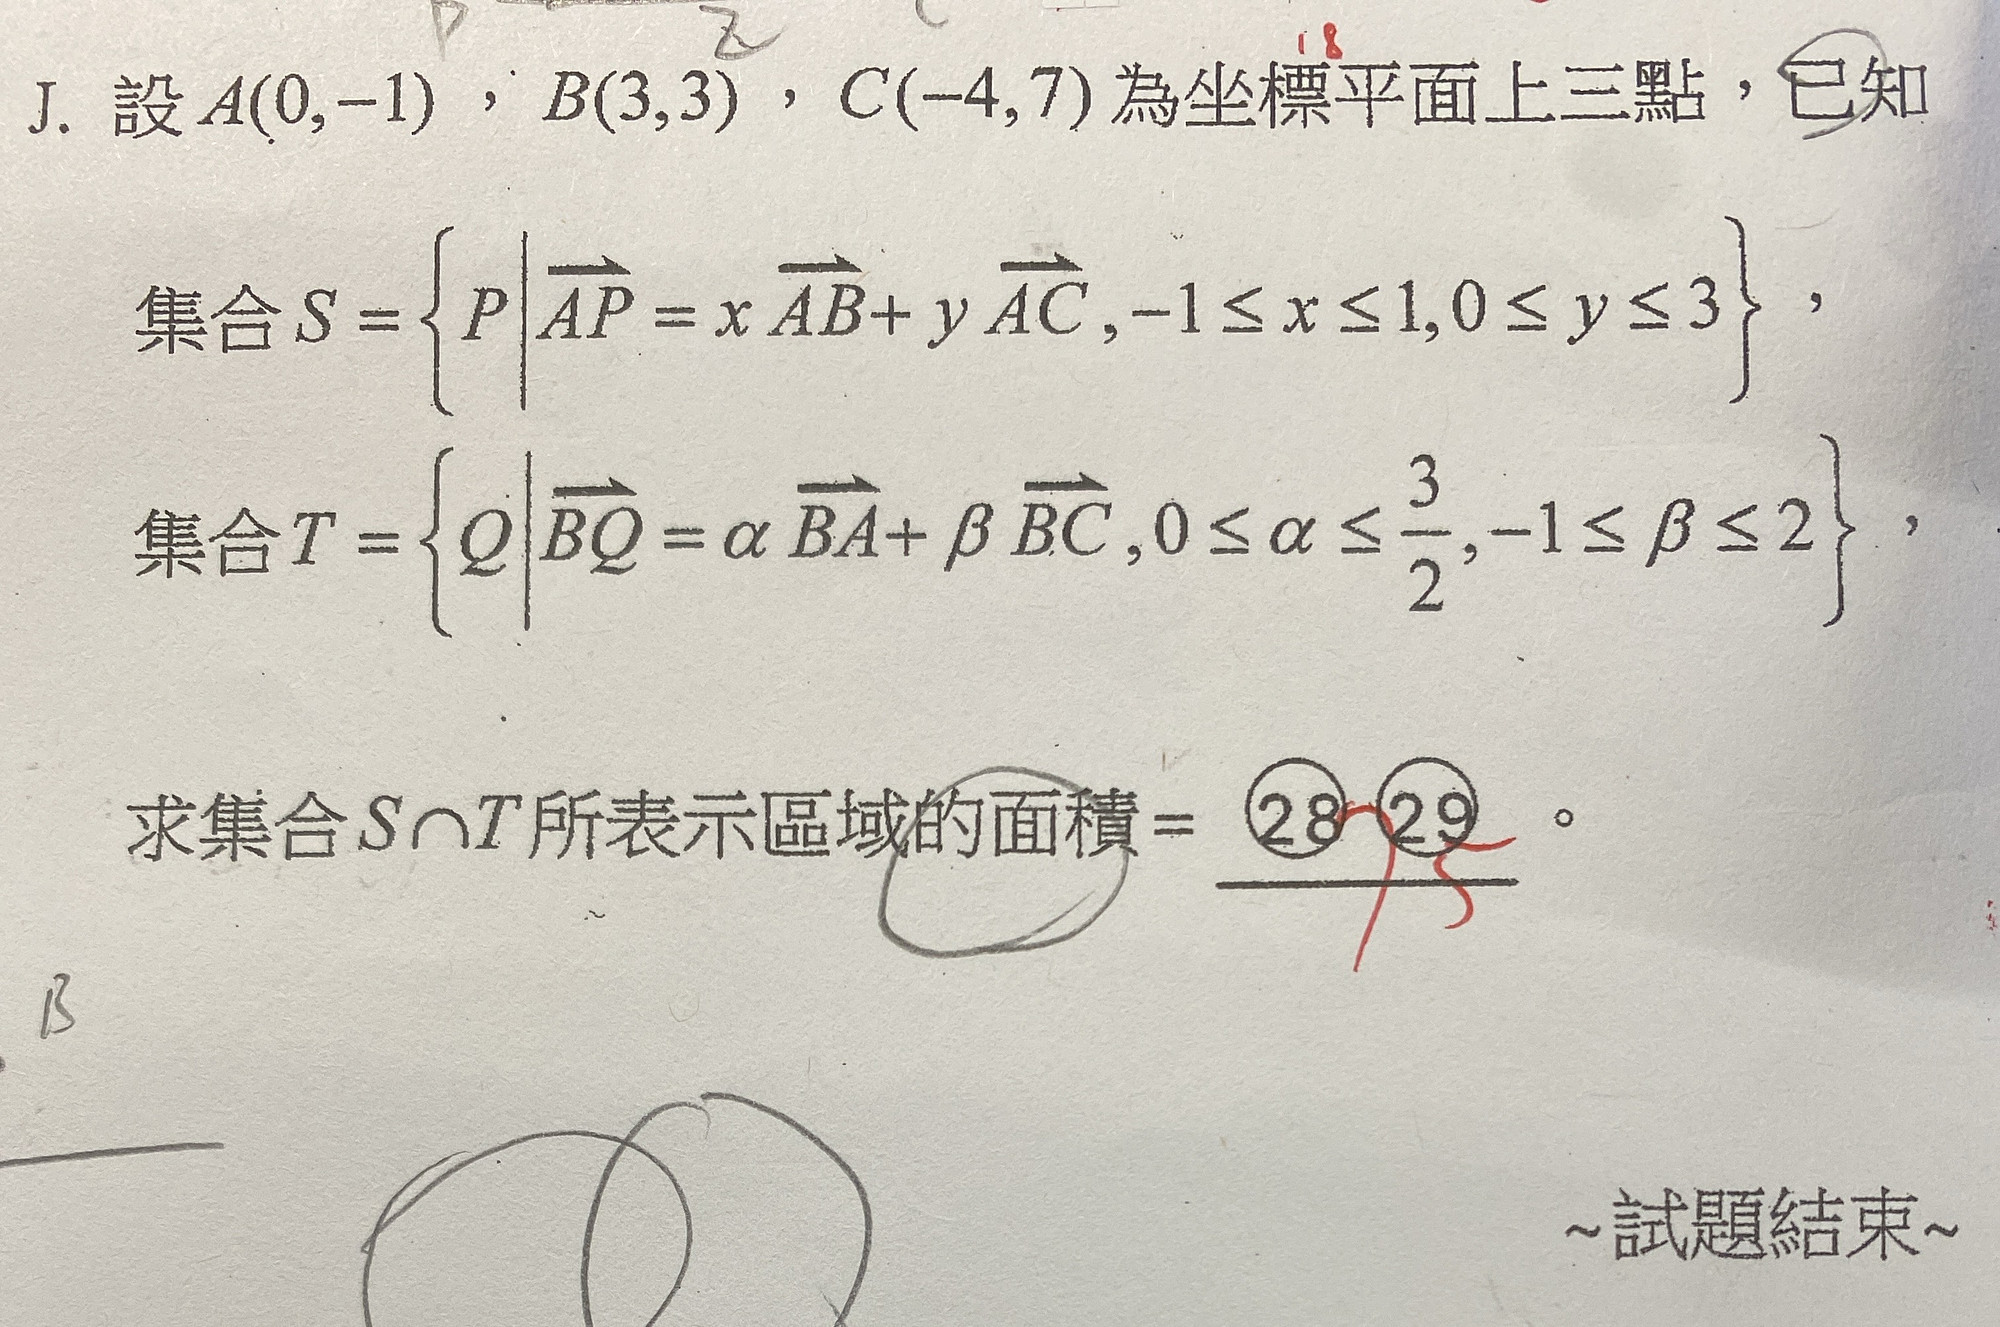 18
J. 設 A(0,−1) ， B(3,3) ， C(−4,7) 為坐標平面上三點，已知
集合 S = { P | AP = x AB + y AC , −1 ≤ x ≤ 1, 0 ≤ y ≤ 3 } ，
集合 T = { Q | BQ = α BA + β BC , 0 ≤ α ≤ 3/2 , −1 ≤ β ≤ 2 } ，
求集合 S∩T 所表示區域的面積 = ㉘ ㉙ 。
75
B
~試題結束~